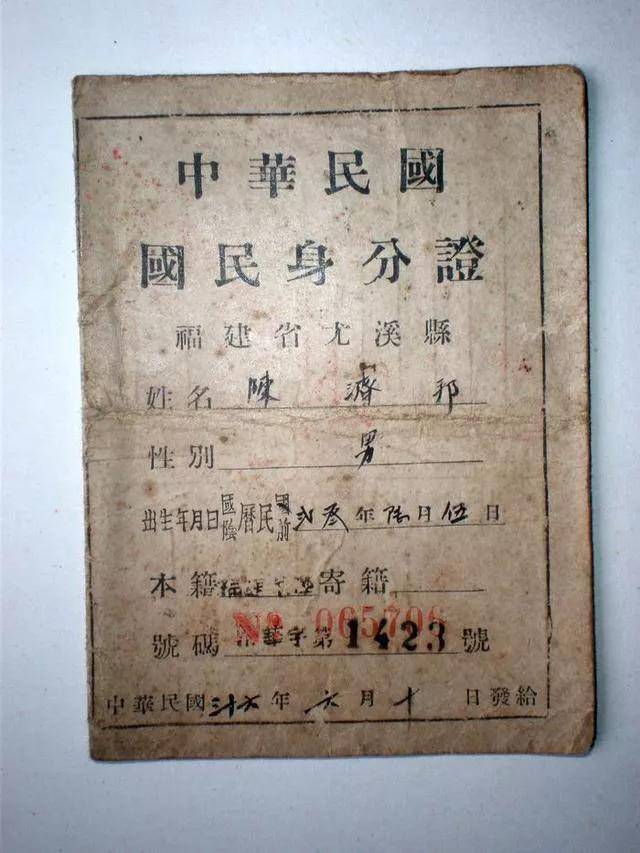 中華民國
國民身分證
福建省尤溪縣
姓名 陳濟邦
性別 男
出生年月日 國陰曆民國前 弍叁年陆月伍日
本籍 福建尤溪 寄籍
號碼 華字第1423號
№ 065706
中華民國三十六年六月十日發給